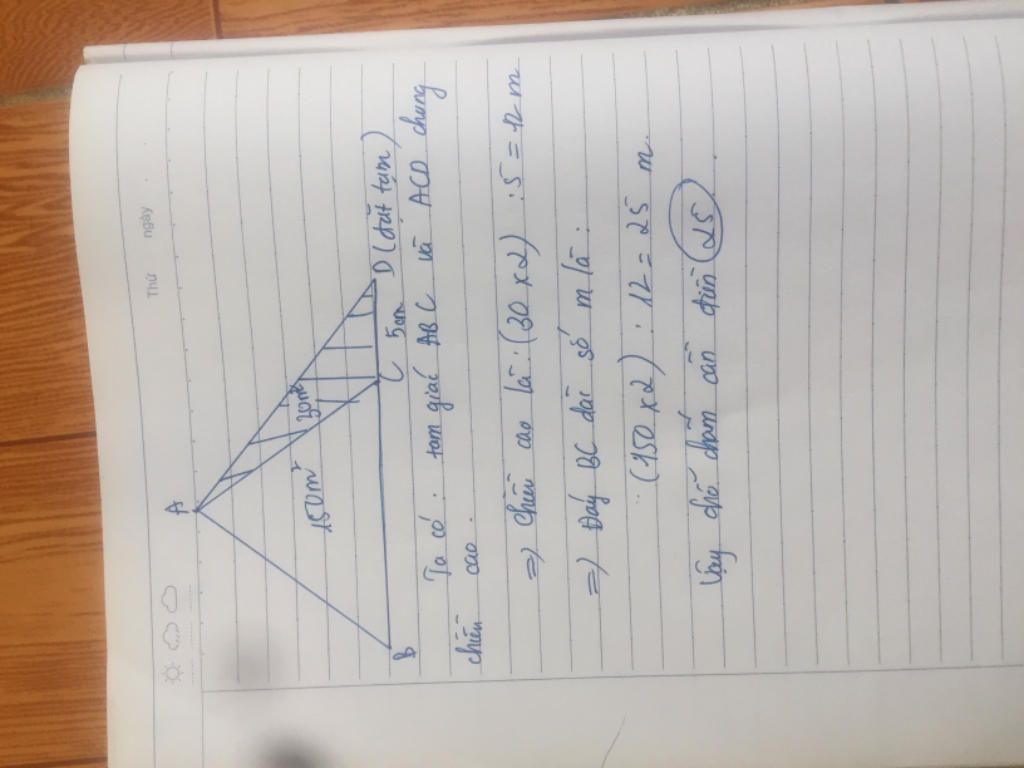 Thứ ngày
A
150m²
30m²
B
C
5cm
D (đặt tạm)
Ta có: tam giác ABC và ACD chung
chiều cao.
=) Chiều cao là: (30 x 2) : 5 = 12 m
=) Đáy BC dài số m là:
(150 x 2) : 12 = 25 m.
Vậy chỗ chấm cần điền 25